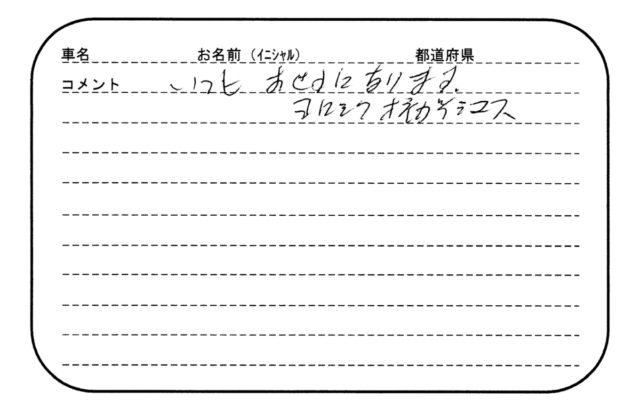 車名 お名前（イニシャル） 都道府県
コメント いつも おせわになります。
ヨロシク オネガイシマス